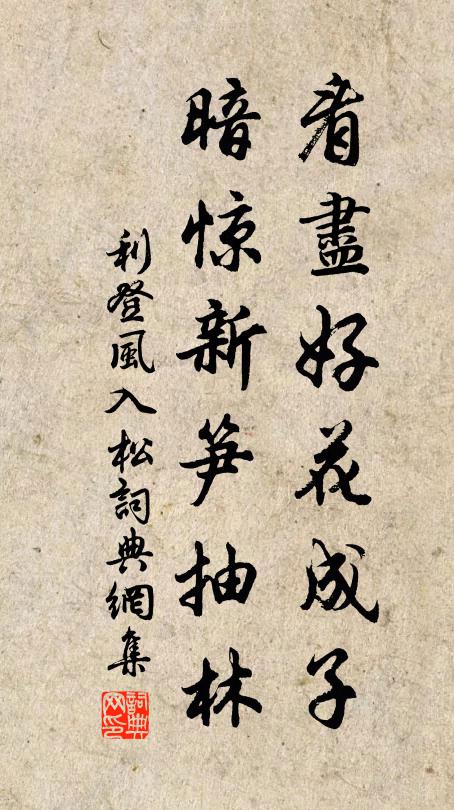 看盡好花成子
暗惊新笋抽林
利登風入松詞典網集
詞典网印